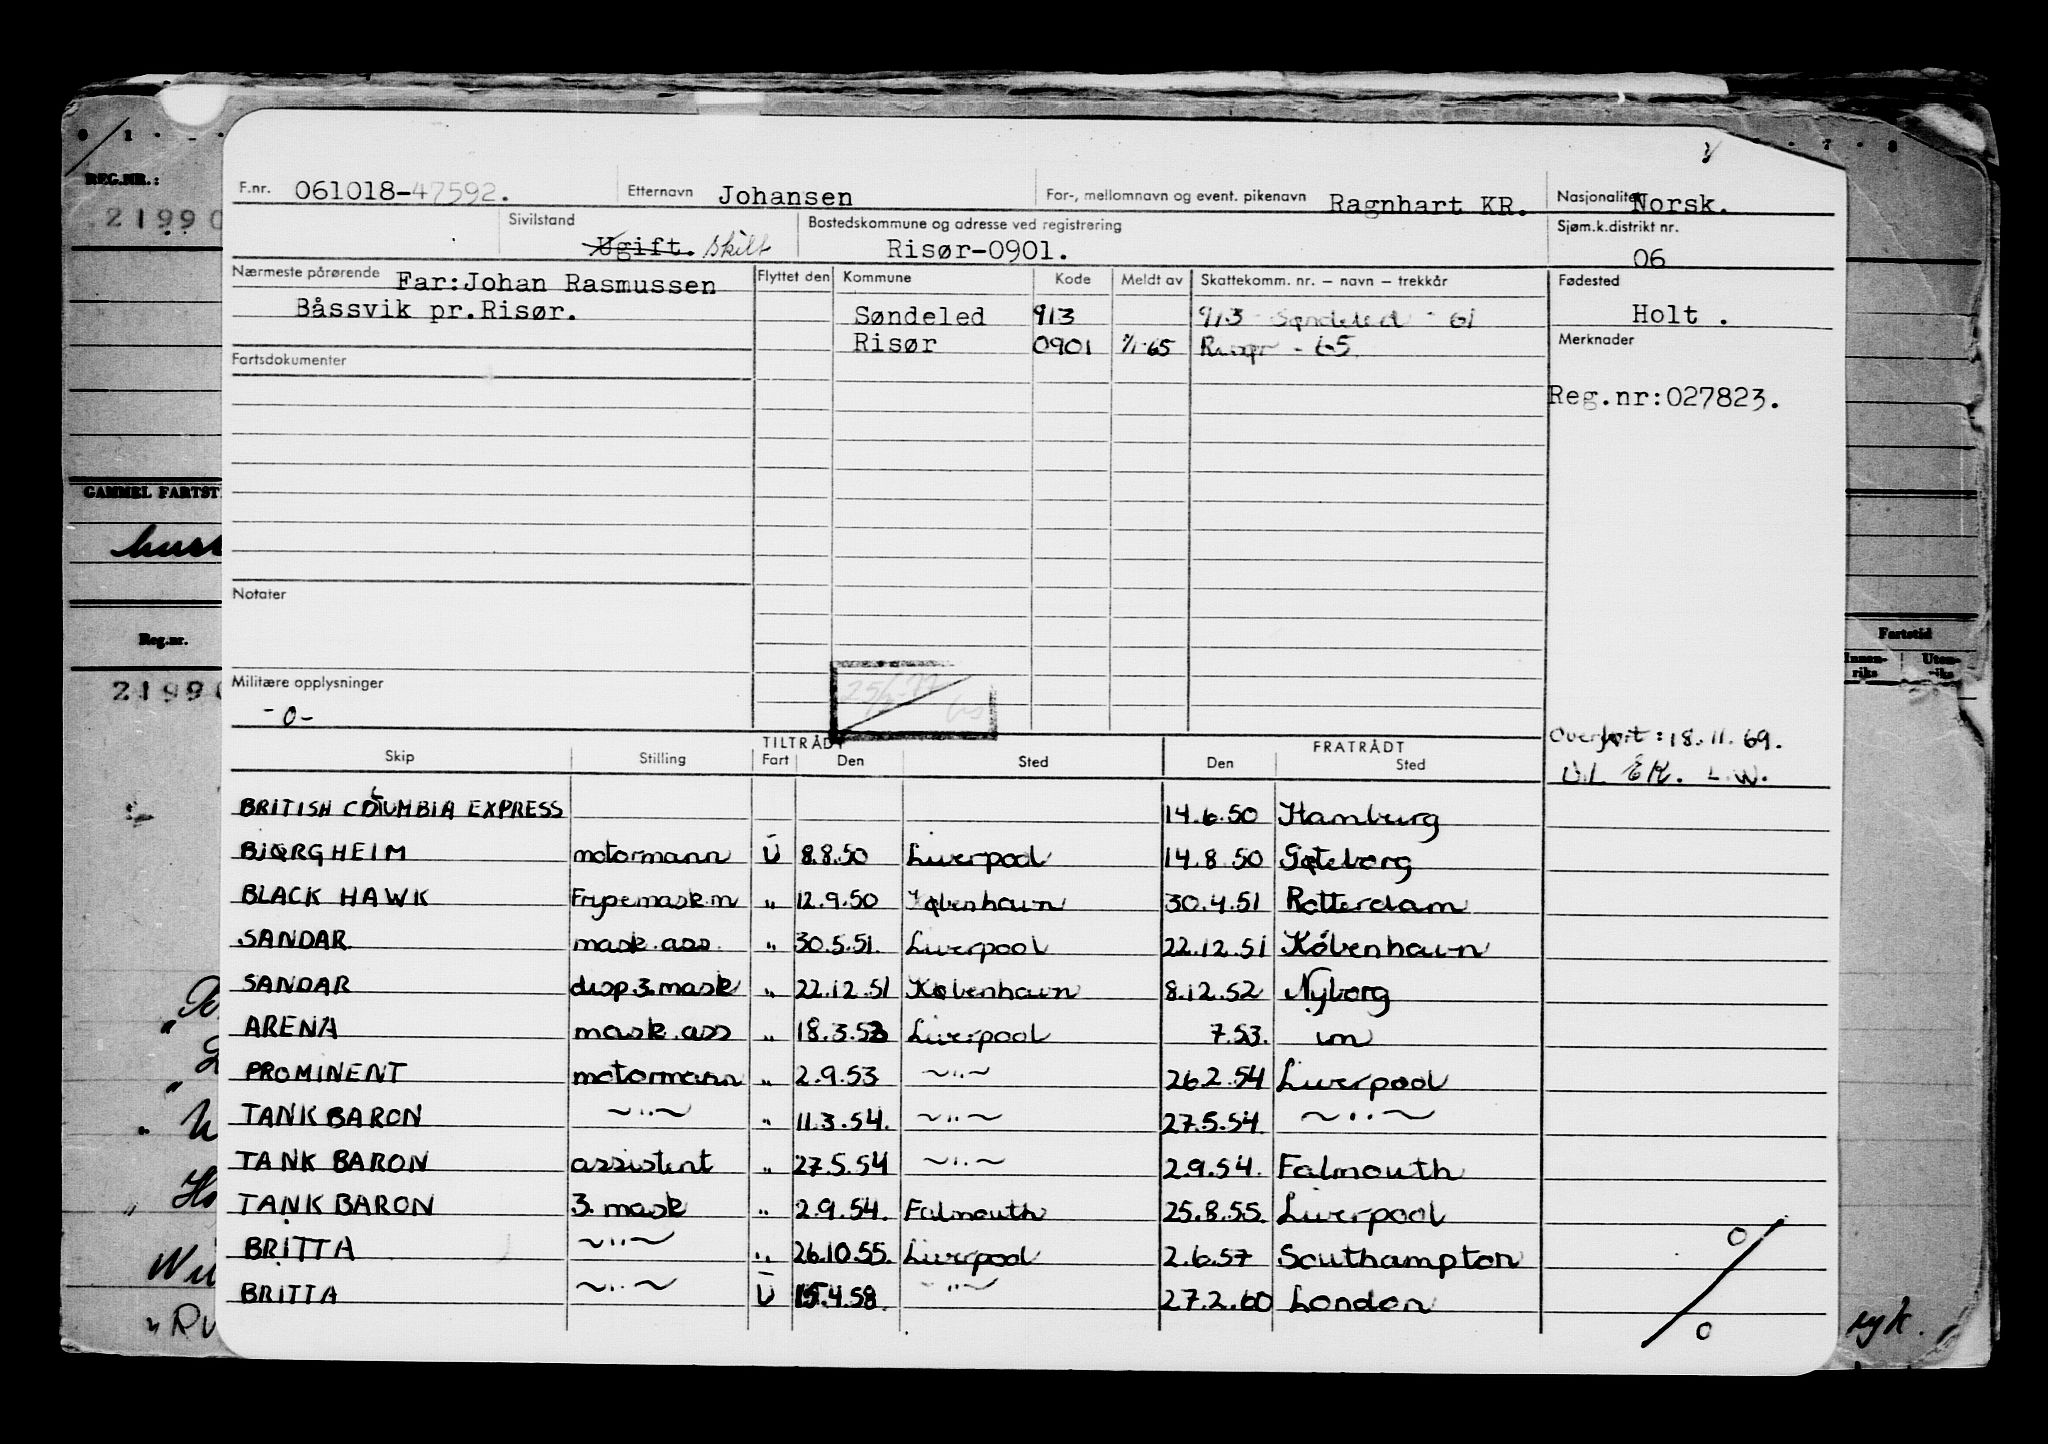 REG.NR.:
2199
GAMMEL FARTST
Reg.nr.
2199
F.nr. 061018-47592. Etternavn Johansen For-, mellomnavn og event. pikenavn Ragnhart KR. Nasjonalitet Norsk.
Sivilstand Ugift. skilt Bostedskommune og adresse ved registrering Risør-0901. Sjøm.k.distrikt nr. 06
Nærmeste pårørende Far:Johan Rasmussen Flyttet den Kommune Kode Meldt av Skattekomm. nr. – navn – trekkår Fødested
Båssvik pr.Risør. Søndeled 913 913 Søndeled - 61 Holt .
Risør 0901 1/1-65 Risør - 65 Merknader
Fartsdokumenter
Reg.nr:027823.
Notater
Militære opplysninger
-0-
Overført: 18.11.69.
L.W.
TILTRÅDT FRATRÅDT
Skip Stilling Fart Den Sted Den Sted
BRITISH COLUMBIA EXPRESS 14.6.50 Hamburg
BJØRGHEIM motormann U 8.8.50 Liverpool 14.8.50 Gøteborg
BLACK HAWK Frysemask.m " 12.9.50 København 30.4.51 Rotterdam
SANDAR mask.ass. " 30.5.51. Liverpool 22.12.51 København
SANDAR disp 3.mask " 22.12.51 København 8.12.52 Nyborg
ARENA mask.ass " 18.3.53 Liverpool 7.53. im
PROMINENT motormann " 2.9.53 ~"~ 26.2.54 Liverpool
TANK BARON ~"~ " 11.3.54. ~"~ 27.5.54 ~"~
TANK BARON assistent " 27.5.54 ~"~ 2.9.54. Falmouth
TANK BARON 3. mask " 2.9.54. Falmouth 25.8.55. Liverpool
BRITTA ~"~ " 26.10.55. Liverpool 2.6.57 Southampton
BRITTA ~"~ U 15.4.58. "~ 27.2.60 London
Fartstid
Innen-riks Uten-riks